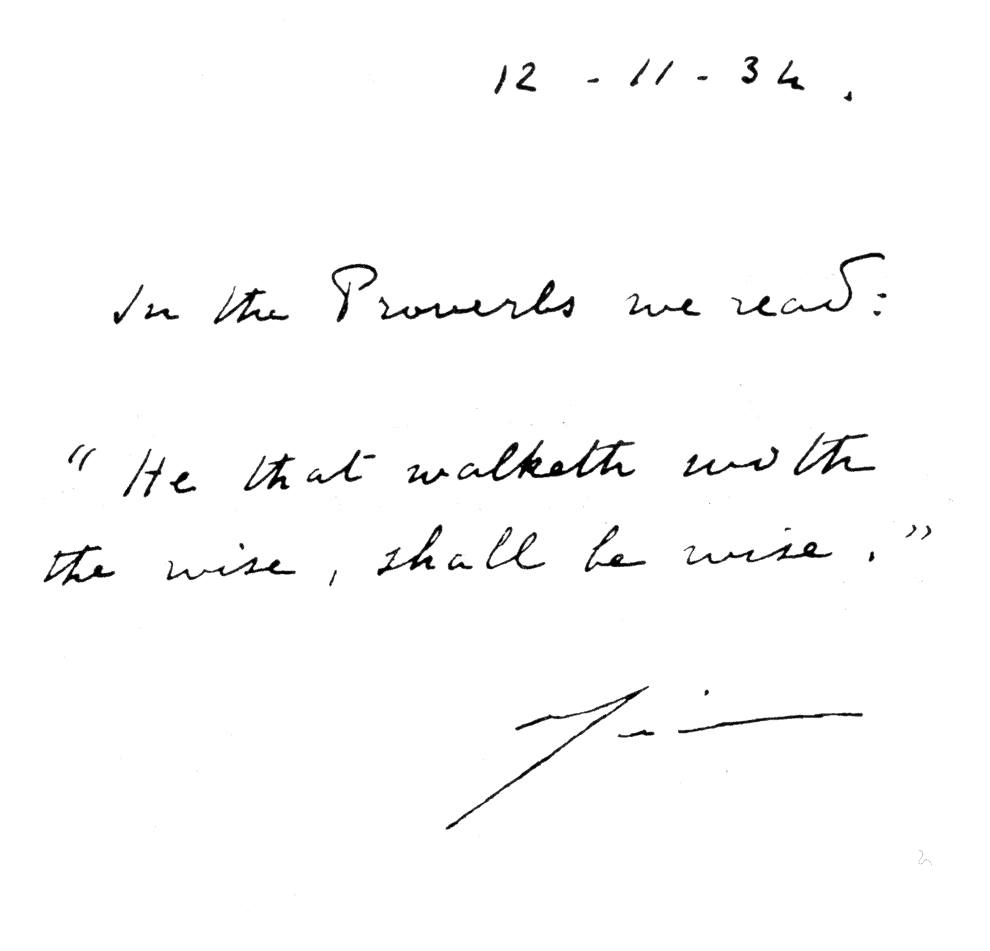 12 - 11 - 34.
In the Proverbs we read:
“He that walketh with
the wise, shall be wise.”